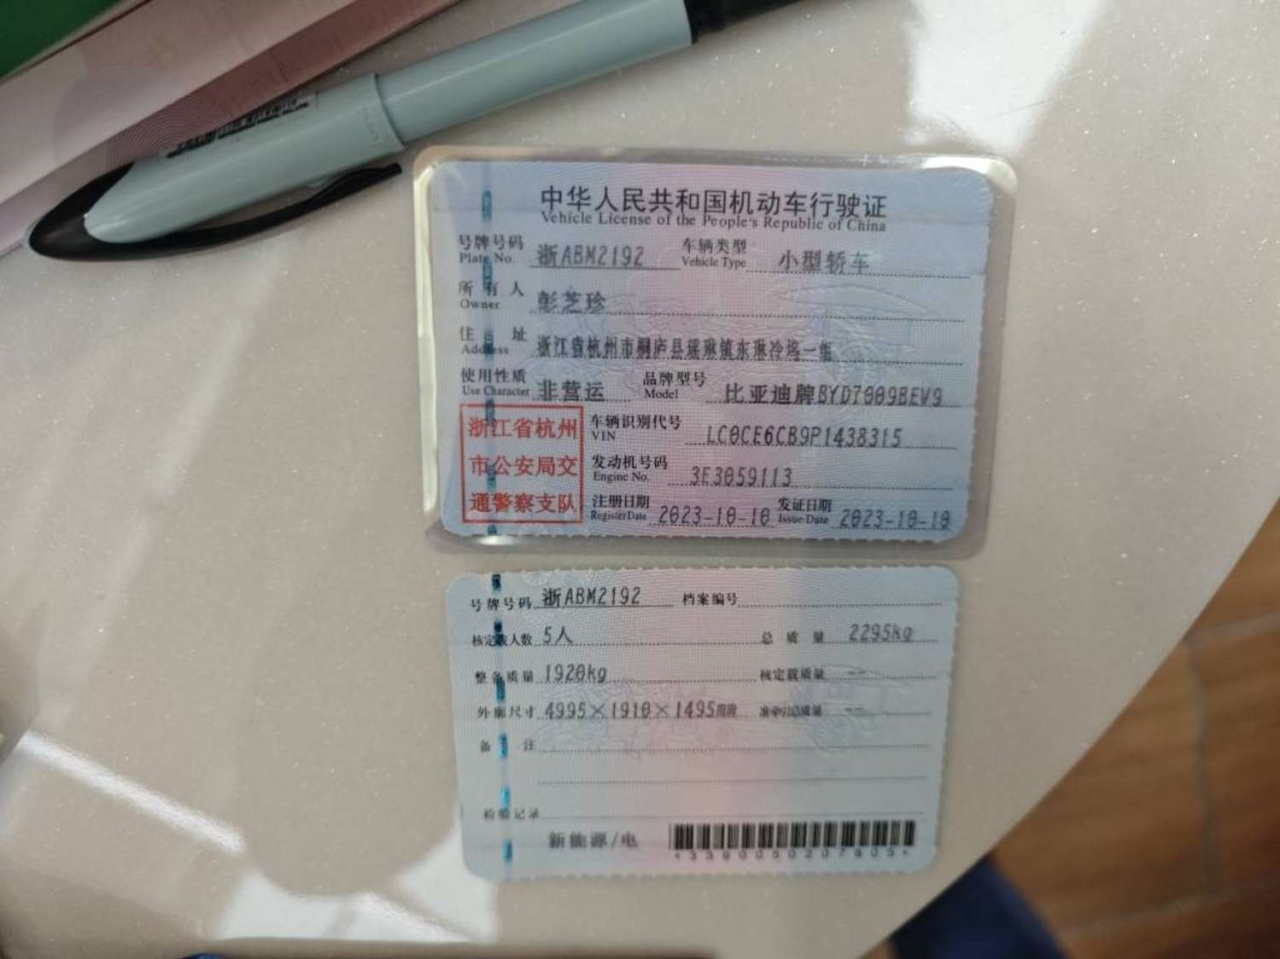 中华人民共和国机动车行驶证
Vehicle License of the People's Republic of China
号牌号码 浙ABM2192 车辆类型 小型轿车
Plate No. Vehicle Type
所有人 彭芝珍
Owner
住址 浙江省杭州市桐庐县瑶琳镇东琳冷坞一组
Address
使用性质 非营运 品牌型号 比亚迪牌BYD7009BEV9
Use Character Model
浙江省杭州
市公安局交
通警察支队
车辆识别代号 LC0CE6CB9P1438315
VIN
发动机号码 3E3059113
Engine No.
注册日期 2023-10-10 发证日期 2023-10-10
Register Date Issue Date
号牌号码 浙ABM2192 档案编号
核定载人数 5人 总质量 2295kg
整备质量 1920kg 核定载质量 --
外廓尺寸 4995×1910×1495mm 准牵引总质量 --
备注
检验记录
新能源/电